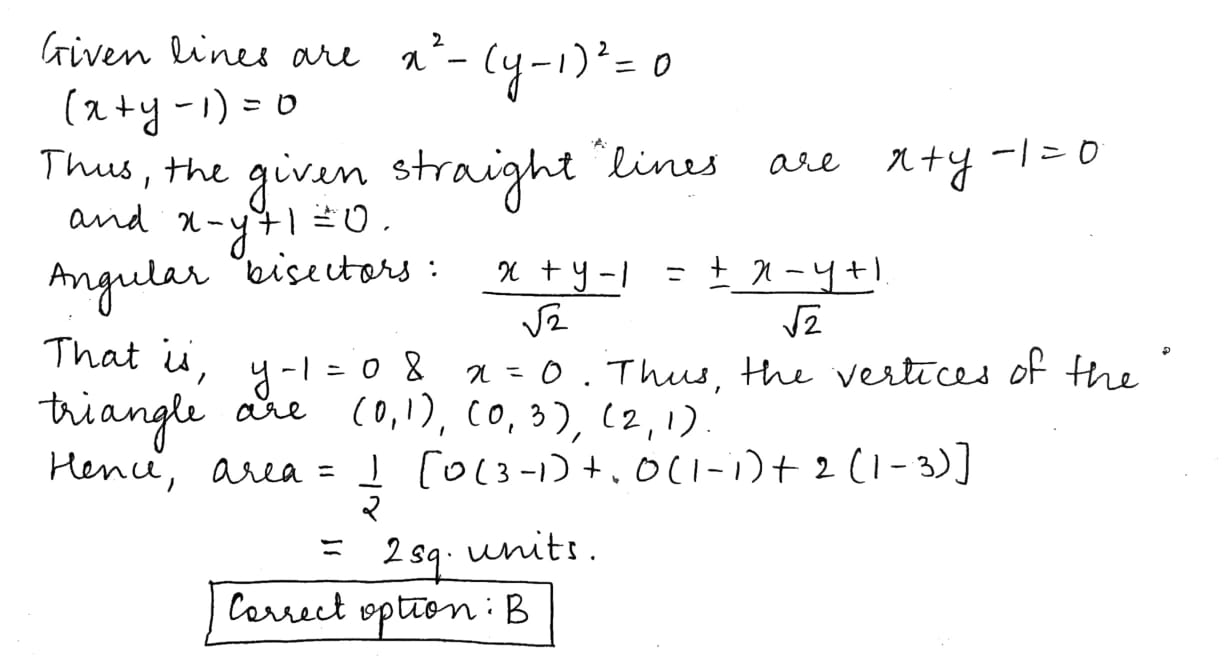 Given lines are x² - (y-1)² = 0
(x+y-1) = 0
Thus, the given straight lines are x+y-1=0
and x-y+1=0.
Angular bisectors: (x+y-1)/√2 = ± (x-y+1)/√2
That is, y-1=0 & x=0. Thus, the vertices of the
triangle are (0,1), (0,3), (2,1).
Hence, area = 1/2 [0(3-1)+0(1-1)+2(1-3)]
= 2 sq. units.
Correct option: B